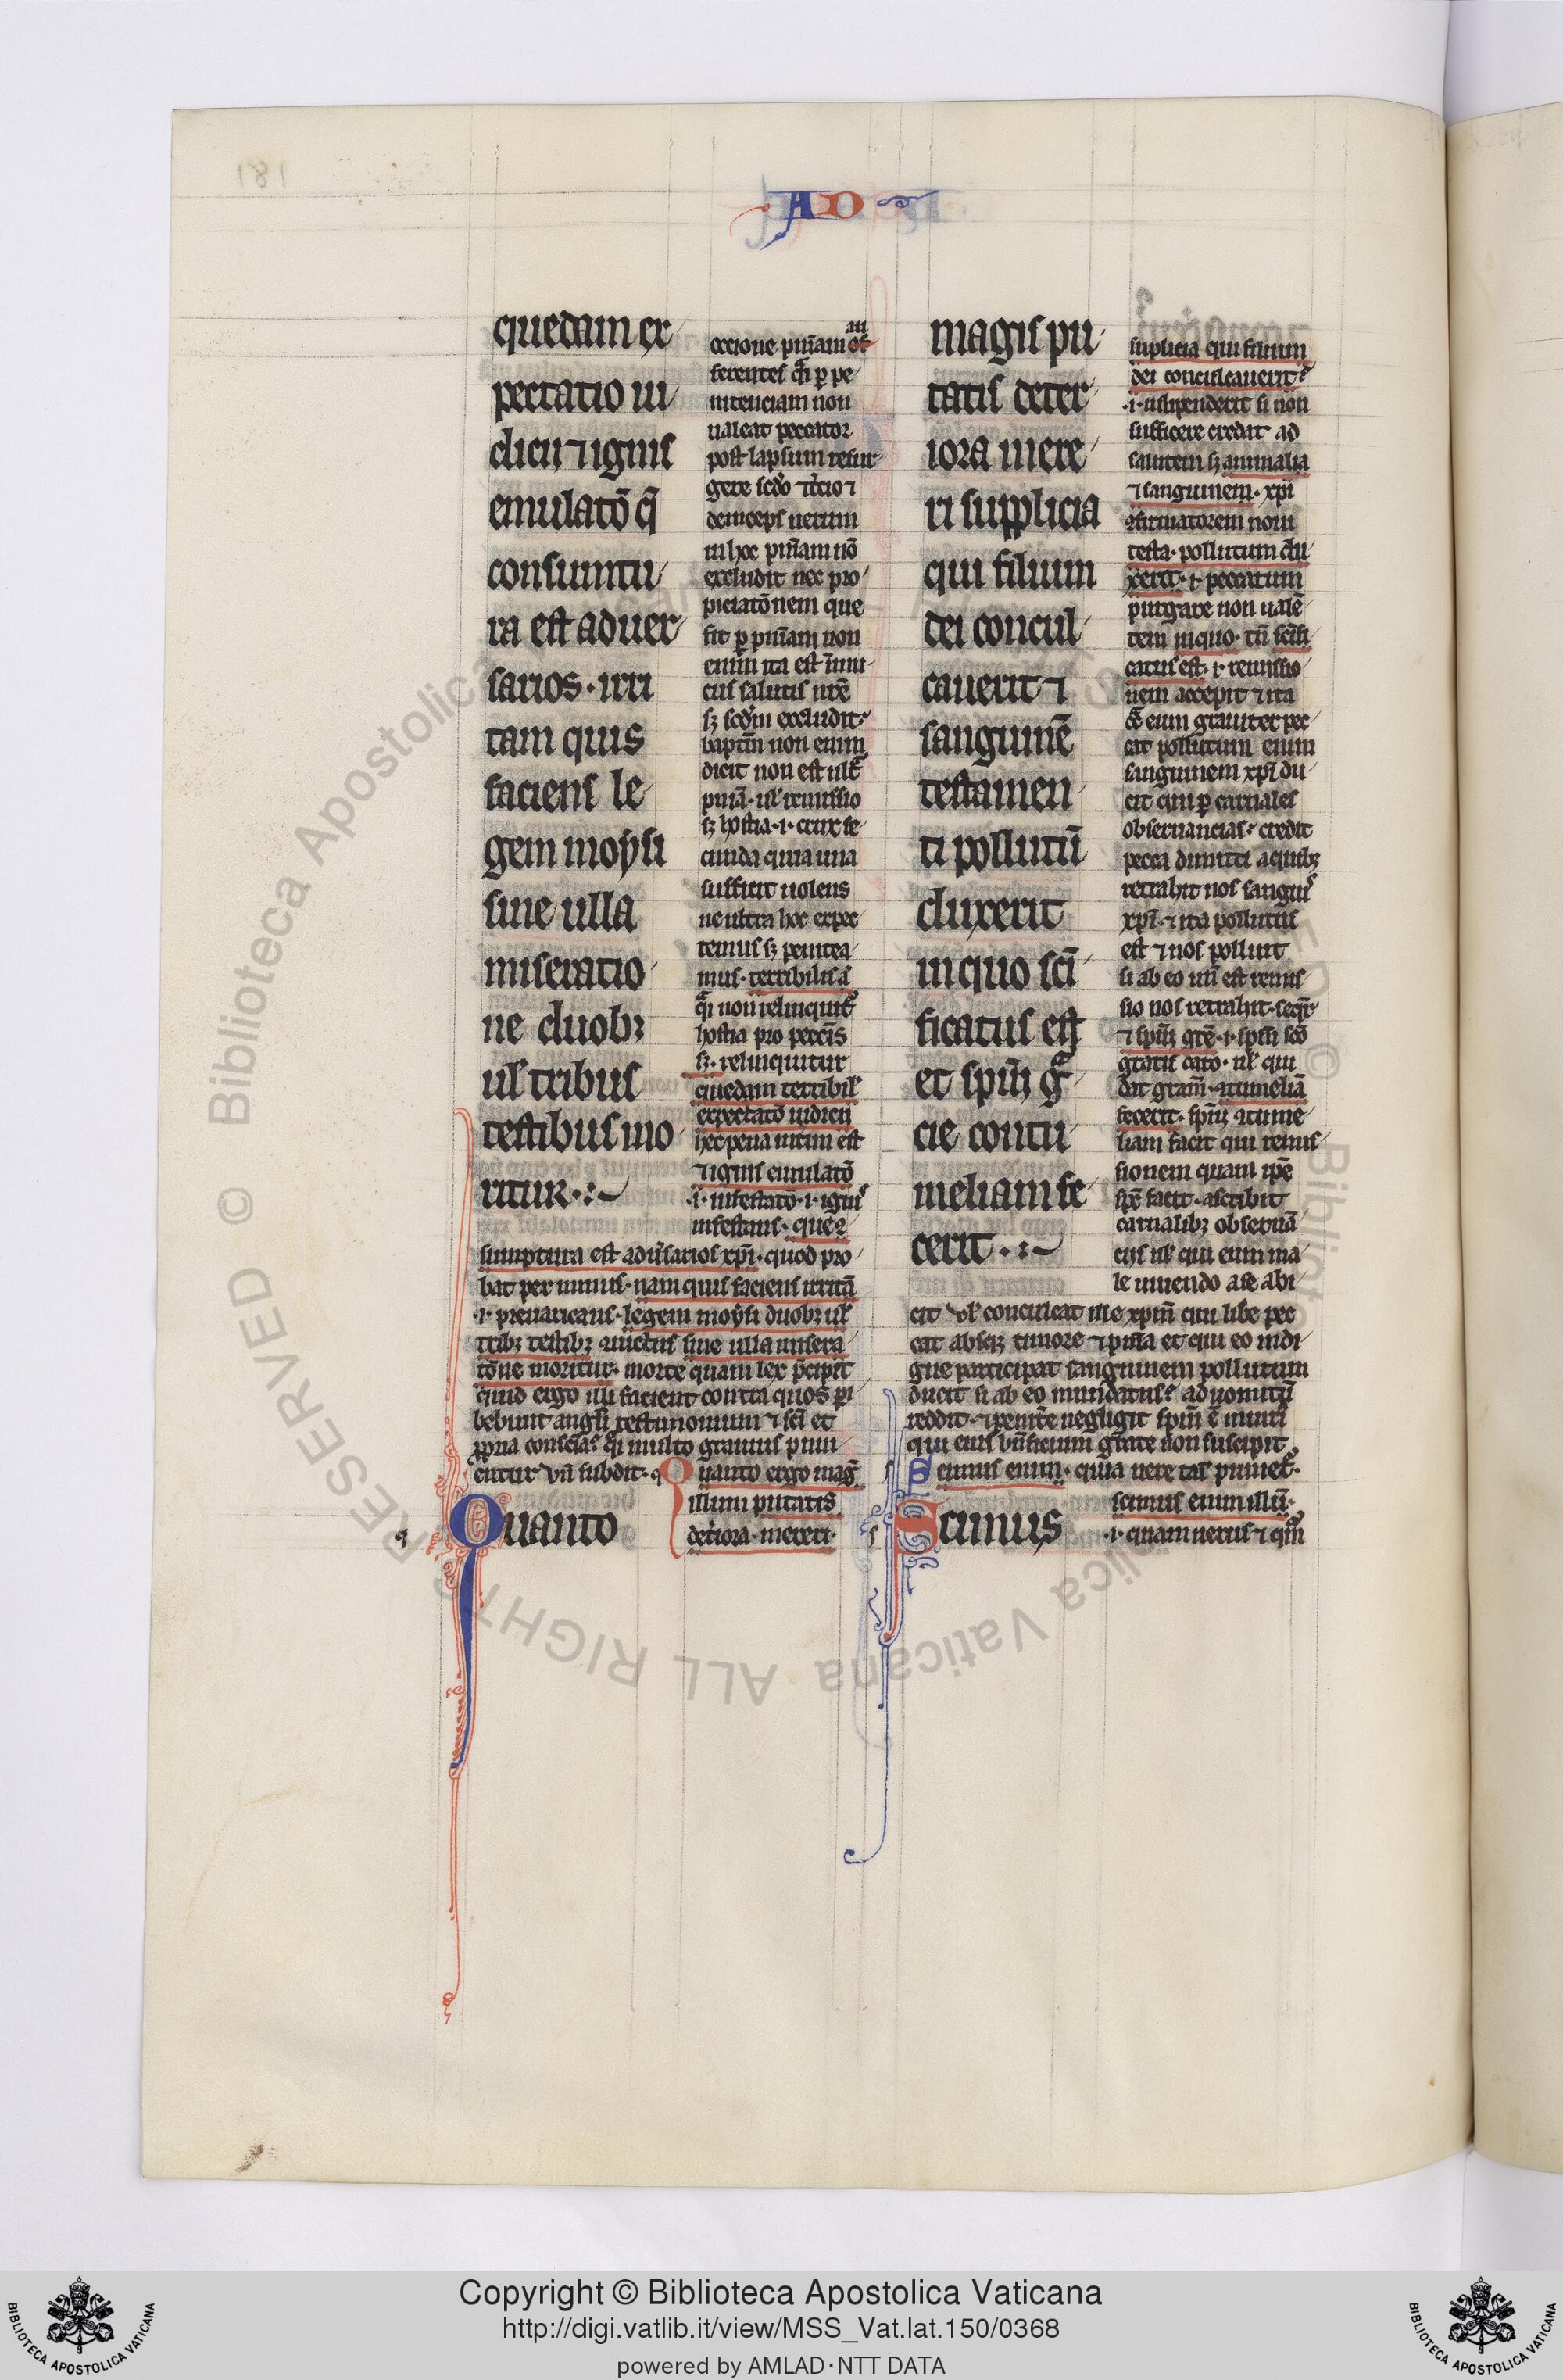 AD
quedam ex
pectatio iu
dicii ⁊ ignis
emulatō q̄
consumtu
ra est aduer
sarios · irri
tam quis
faciens le
gem moẏsi
sine ulla
miseratio
ne duobꝫ
ul̄ tribus
testibus mo
ritur ·:~
occione pnīam au
ferentes qͣi ꝑ pe
nitenciam non
ualeat peccator
post lapsum resur
gere scd̄o ⁊ t̄cio ⁊
deinceps uerum
in hoc pnīam nō
excludit nec pro
piciatōnem que
fit ꝑ pnīam non
enim ita est inimi
cus salutis nr̄e
sꝫ scd̄m excludit
baptm̄ non enim
dicit non est ult̄
pniā · ul̄ remissio
sꝫ hostia · i · crux se
cunda quia una
sufficit uolens
ne ultra hoc expec
temus sꝫ penitea
mus · terribilis ā
qͣi non relinquit᷑
hostia pro pecc̄is
sꝫ · relinquitur
quedam terribil̄
expectatō iudicii
hec pena intim est
⁊ ignis emulatō
· i · infestatō · i · ignis
infestans · que ꝯ
sumptura est adūsarios xp̄i · quod pro
bat per minus · nam quis faciens irritā
· i · preuaricans · legem moẏsi duobꝫ ul̄
tribꝫ testibꝫ ꝯuictus sine ulla misera
tōne moritur · morte quam lex p̄cipit
quid ergo illi facient contra quos ꝑi
bebunt angl̄i testimonium ⁊ sc̄i et
ꝓpria consciā qͣi multo grauius puni
entur vn̄ subdit · Quanto ergo mag̃
illum putatis
det̄iora · mereri ·
q
Quanto
magis pu
tatis deter
iora mere
ri supplicia
qui filium
dei concul
cauerit ⁊
sanguinē
testamen
ti pollutū
duxerit
in quo sc̄i
ficatus est
et spūi gͣ
cie contu
meliam fe
cerit ·:~
suplicia qui filium
dei conculcauerit
· i · uilipenderit si non
sufficere credat ad
salutem sꝫ animalia
⁊ sanguinem · xp̄i
ꝯfirmatorem noui
testa · pollutum du
xerit · i · peccatum
purgare non ualē
tem in quo · tn̄ sc̄ifi
catus est · i · remissio
nem accepit ⁊ ita
qͣ eum grauiter pec
cat pollutum enim
sanguinem xp̄i du
cit qui ꝑ carnales
obseruancias credit
pecca dimitti a quibꝫ
retrahit nos sanguis
xp̄i · ⁊ ita pollutus
est ⁊ nos polluit
si ab eo un̄ est remis
sio nos retrahit · seqͥr
⁊ spūi gr̄e · i · spūi scō
gratis dato · ul̄ qui
dat gram̄ · ꝯtumeliā
fecerit · spūi ꝯtume
liam facit qui remis
sionem quam ip̄e
sp̄c facit · ascribit
carnalibꝫ obseruā
ciis ul̄ qui eum ma
le uiuendo a se abi
cit Vl̄ conculcat ille xpm̄ qui libe pec
cat absqꝫ timore ⁊ pn̄ia et qui eo indi
gne participat sanguinem pollutum
ducit si ab eo mundatus ad uomitū
reddit · ⁊ penit̄e negligit spūi ē iniuri
qui eius bn̄ficium grate non suscipit
Scimus enim · quia uere tal̄ puniet᷑ ·
scimus enim illū ·
· i · quam uerus ⁊ qm̄
s
s
Scimus
Copyright © Biblioteca Apostolica Vaticana
http://digi.vatlib.it/view/MSS_Vat.lat.150/0368
powered by AMLAD·NTT DATA
BIBLIOTECA APOSTOLICA VATICANA
BIBLIOTECA APOSTOLICA VATICANA